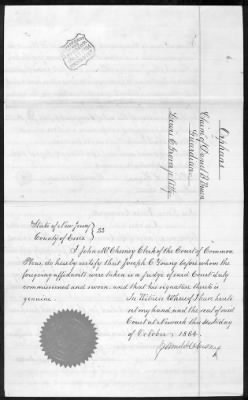 Orphans
Claim of Daniel B
Guardian
State of New Jersey
County of Essex } SS
I John McChesney Clerk of the Court of Common
Pleas, do hereby certify that Joseph C. Young before whom the
foregoing affidavits were taken is a judge of said Court duly
commissioned and sworn and that his signature thereto is
genuine.
In Witness Whereof I have hereto
set my hand and the seal of said
Court at Newark this day
of October, 1864